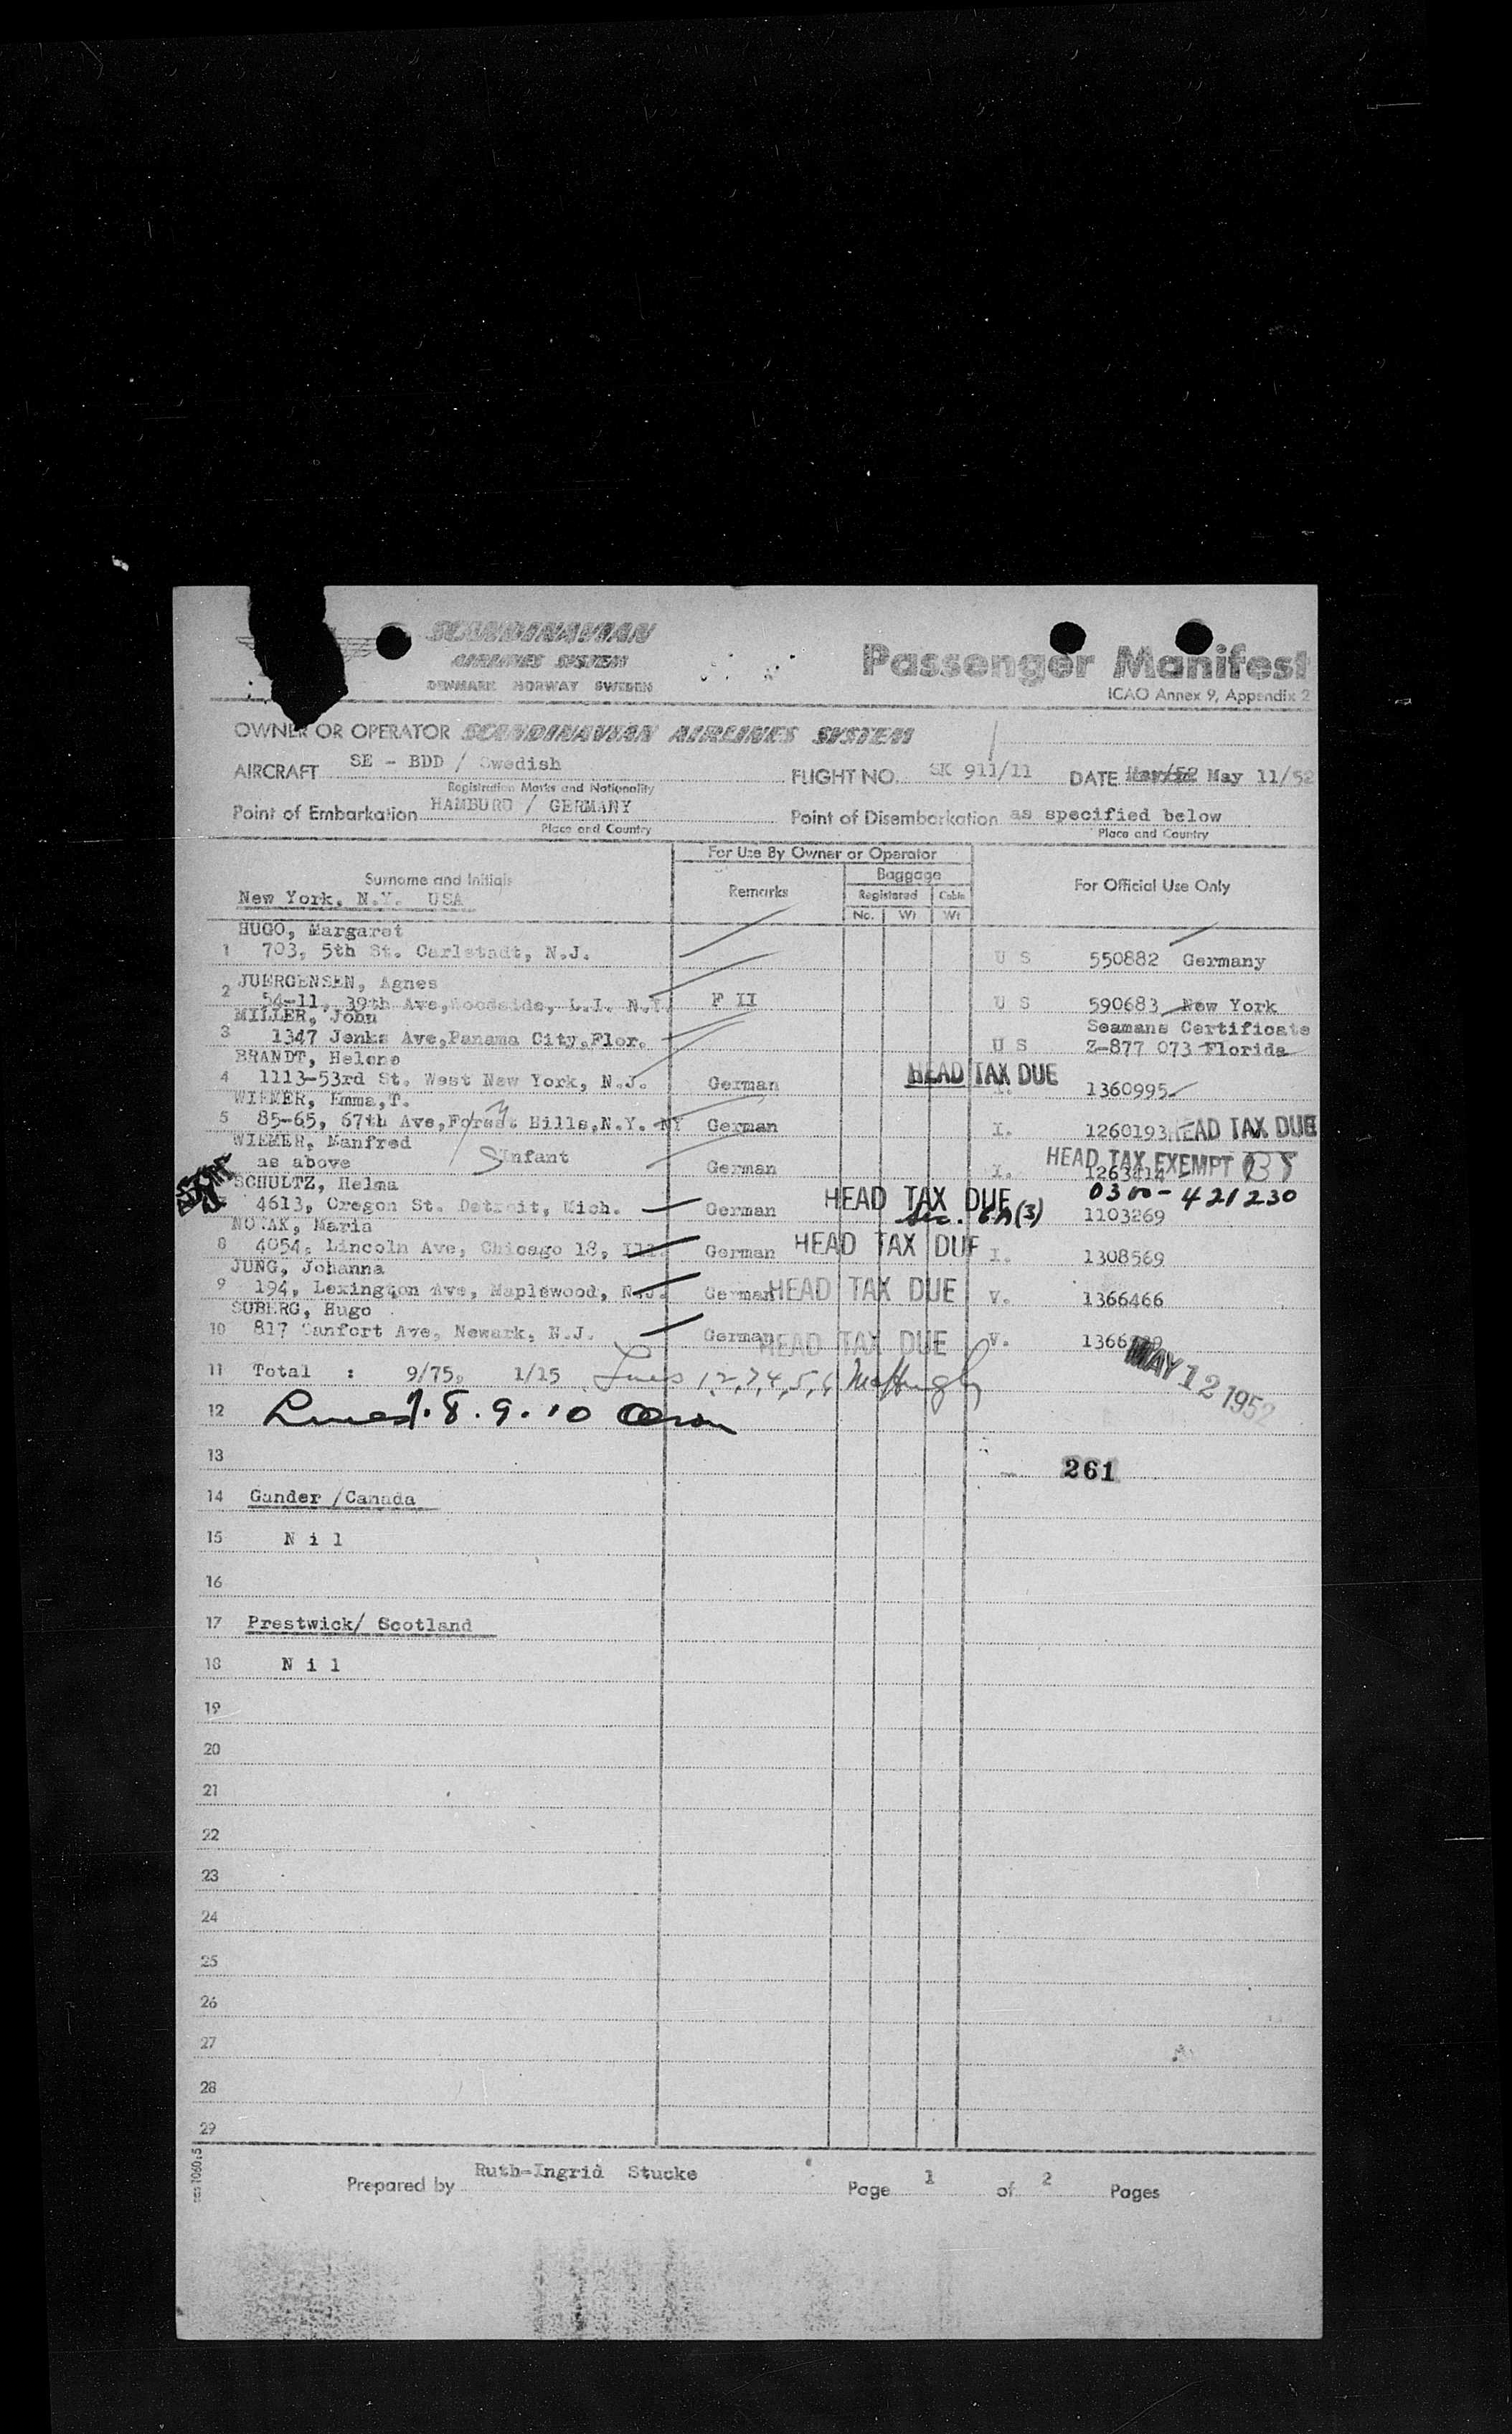 SCANDINAVIAN
AIRLINES SYSTEM
DENMARK NORWAY SWEDEN
Passenger Manifest
ICAO Annex 9, Appendix 2
OWNER OR OPERATOR SCANDINAVIAN AIRLINES SYSTEM
AIRCRAFT SE - BDD / Swedish FLIGHT NO. SK 911/11 DATE May 11/52
Registration Marks and Nationality
Point of Embarkation HAMBURG / GERMANY Point of Disembarkation as specified below
Place and Country Place and Country
For Use By Owner or Operator
Surname and Initials Remarks Baggage For Official Use Only
Registered Cabin
New York, N.Y. USA
No. Wt Wt
HUGO, Margaret
1 703, 5th St. Carlstadt, N.J. U S 550882 Germany
JUERGENSEN, Agnes
2 54-11, 39th Ave, Woodside, L.I. N.Y. F II U S 590683 New York
MILLER, John Seamans Certificate
3 1347 Jenks Ave, Panama City, Flor. U S Z-877 073 Florida
BRANDT, Helene HEAD TAX DUE
4 1113-53rd St. West New York, N.J. German 1360995
WIEMER, Emma, T.
5 85-65, 67th Ave, Forest Hills, N.Y. NY German I. 1260193 HEAD TAX DUE
WIEMER, Manfred HEAD TAX EXEMPT
as above Infant German I. 1263414
SCHULTZ, Helma HEAD TAX DUE 0300-421230
4613, Oregon St. Detroit, Mich. German Sec. (3) 1103269
NOVAK, Maria
8 4054, Lincoln Ave, Chicago 18, Ill. German HEAD TAX DUE I. 1308569
JUNG, Johanna
9 194, Lexington Ave, Maplewood, N.J. German HEAD TAX DUE V. 1366466
SUBERG, Hugo
10 817 Sanfort Ave, Newark, N.J. German HEAD TAX DUE V.
MAY 12 1952
11 Total : 9/75, 1/15 Lines 1,2,3,4,5,6
12 Lines 7. 8. 9. 10
13 261
14 Gander /Canada
15 N i l
16
17 Prestwick/ Scotland
18 N i l
19
20
21
22
23
24
25
26
27
28
29
Prepared by Ruth-Ingrid Stucke Page 1 of 2 Pages